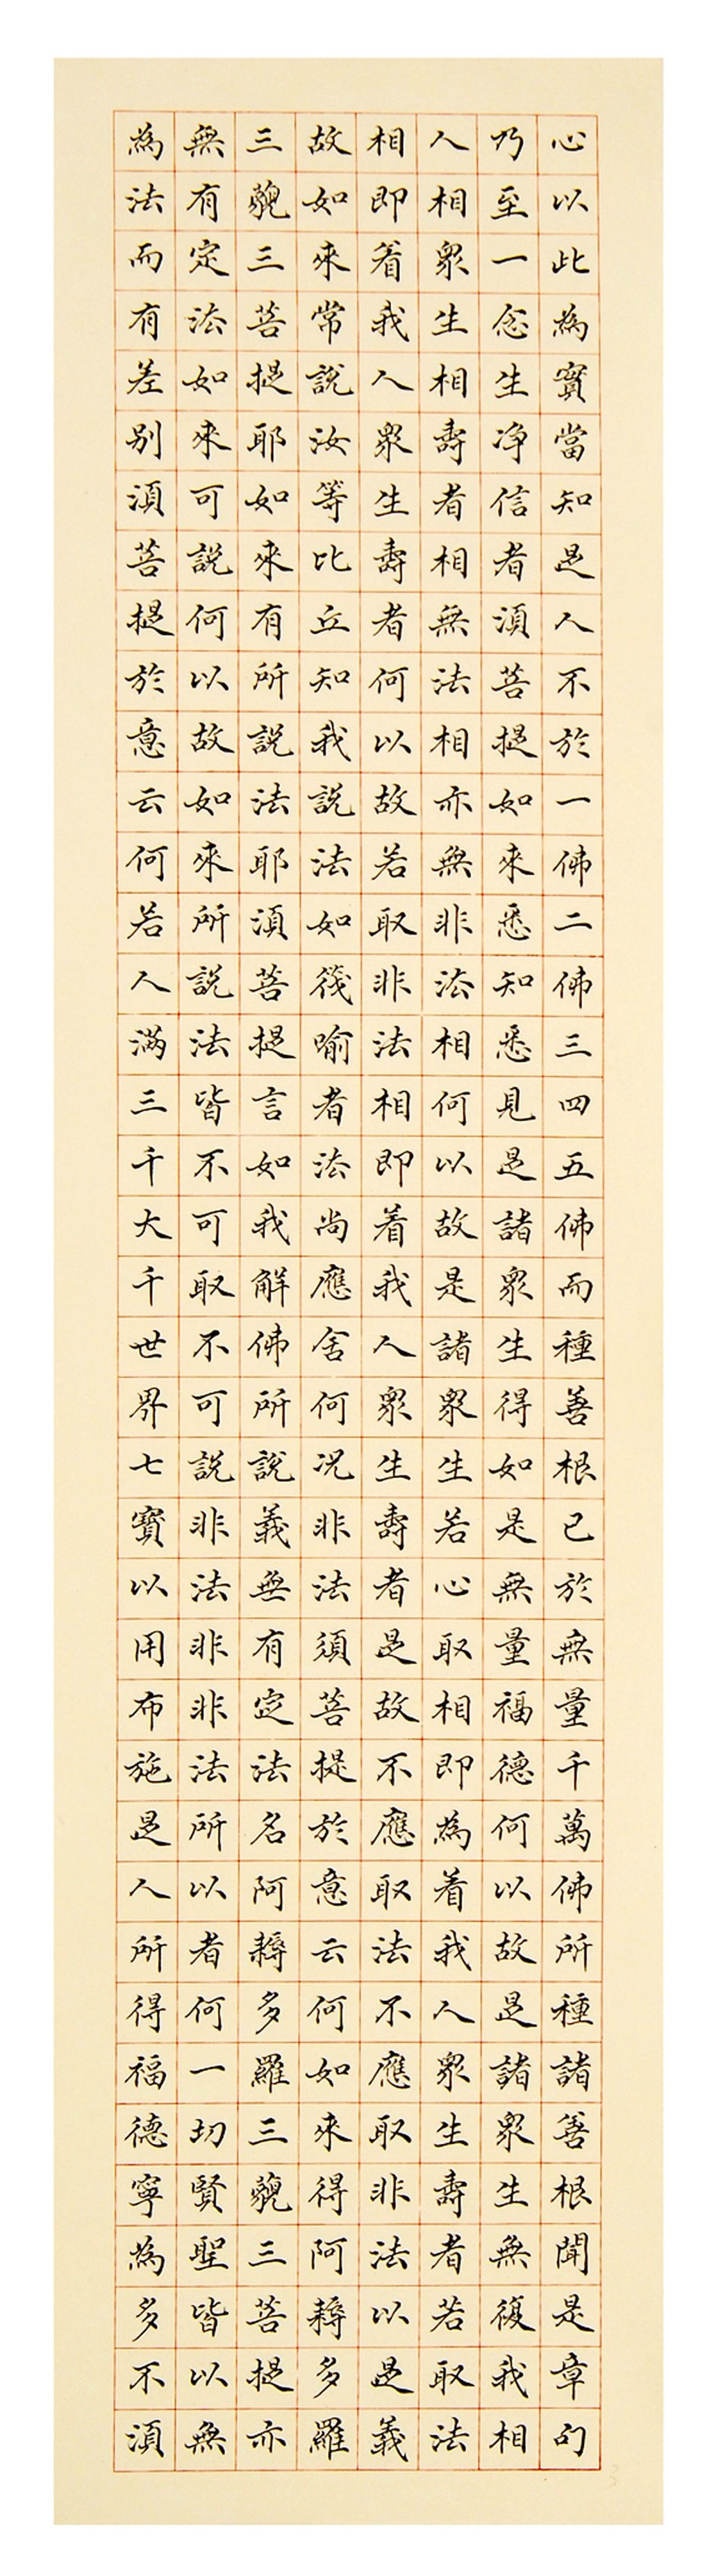 心以此為實當知是人不於一佛二佛三四五佛而種善根已於無量千萬佛所種諸善根聞是章句
乃至一念生净信者須菩提如來悉知悉見是諸眾生得如是無量福德何以故是諸眾生無復我相
人相眾生相壽者相無法相亦無非法相何以故是諸眾生若心取相即為着我人眾生壽者若取法
相即着我人眾生壽者何以故若取非法相即着我人眾生壽者是故不應取法不應取非法以是義
故如來常說汝等比丘知我說法如筏喻者法尚應舍何况非法須菩提於意云何如來得阿耨多羅
三藐三菩提耶如來有所說法耶須菩提言如我解佛所說義無有定法名阿耨多羅三藐三菩提亦
無有定法如來可說何以故如來所說法皆不可取不可說非法非非法所以者何一切賢聖皆以無
為法而有差別須菩提於意云何若人滿三千大千世界七寶以用布施是人所得福德寧為多不須